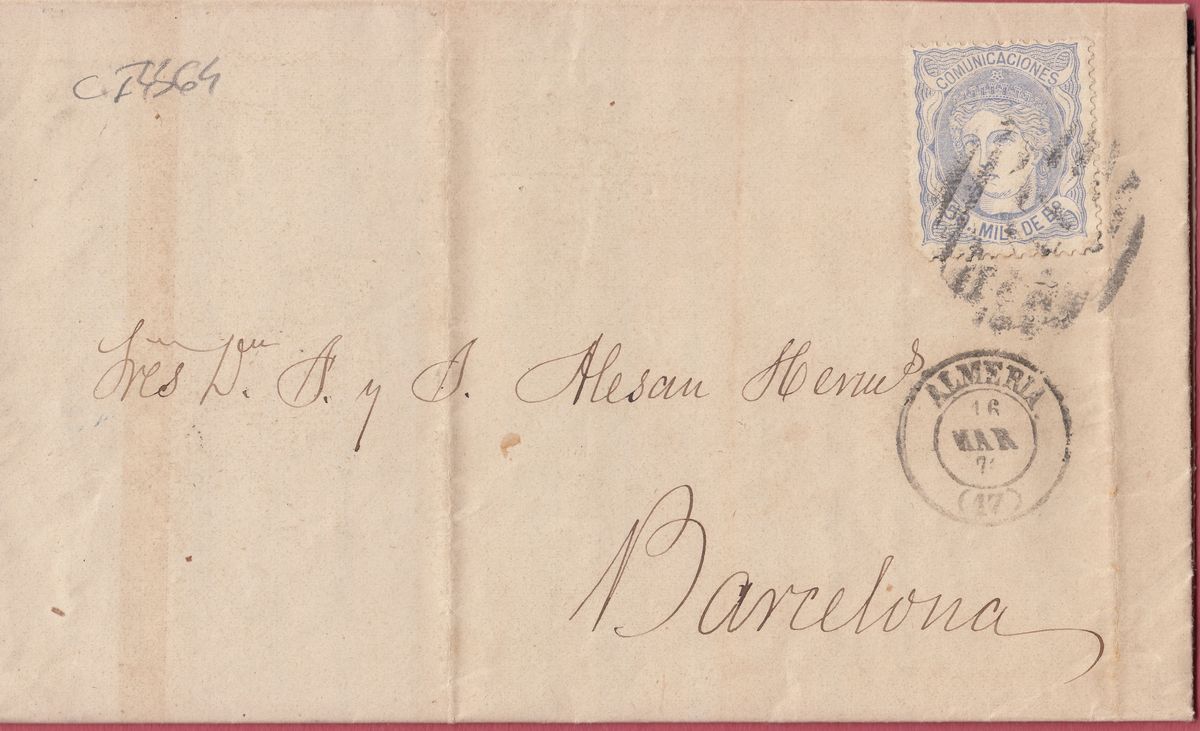 COMUNICACIONES
MIL. DE Es
Sres Dn. J. y J. Alesan Herms
ALMERIA.
16
MAR
(17)
Barcelona